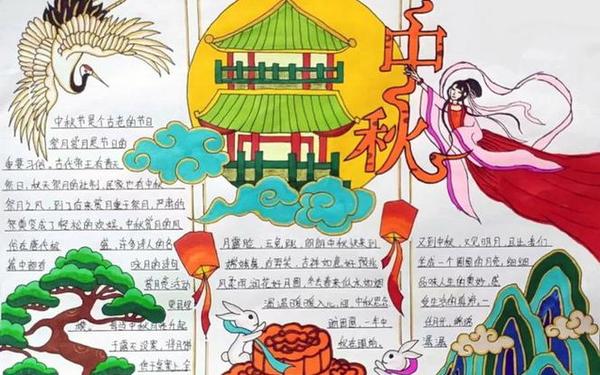 中秋
中秋节是个古老的节日
祭月赏月是节日的
重要习俗。古代帝王有春天
祭日,秋天祭月的社制,民家也有中秋
祭月之风,到了后来赏月重于祭月,严肃的
祭祀变成了轻松的欢娱。中秋赏月的风
俗在唐代极盛,许多诗人的名
篇中都有咏月的诗句
赏月类活动
更具规
模。每当中秋月亮升起
于露天设案,将月饼
月露脸,
朗朗中秋欢来到
嫦娥舞,
吉祥如意好预兆
风柔雨润花好月圆,
温温暖暖入心间,中秋思念
就团圆,一年中
秋在眼前。
又到中秋,又见明月,且让我们
坐成一个圆圆的月亮,细细
品味人生的美妙,感
受生活的眷恋。
任月光,